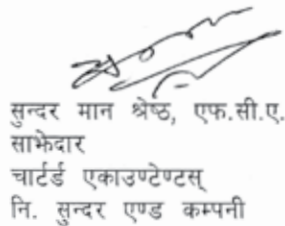 सुन्दर मान श्रेष्ठ, एफ.सी.ए.
साझेदार
चार्टर्ड एकाउण्टेण्टस्
नि. सुन्दर एण्ड कम्पनी